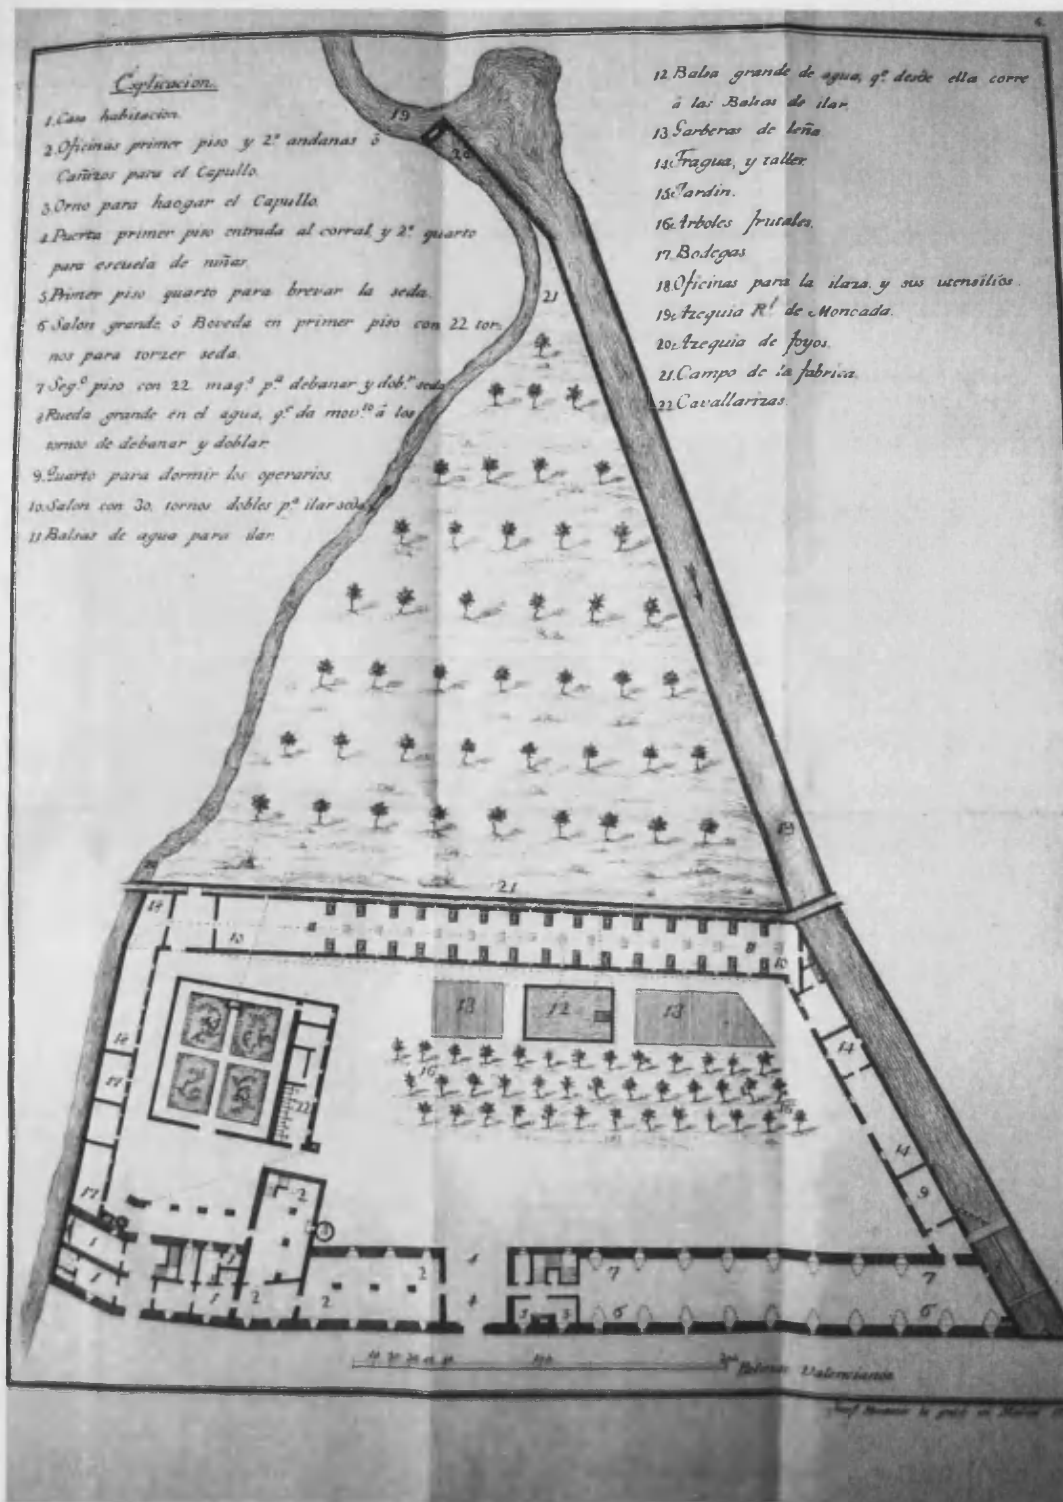 Explicacion.
1. Casa habitacion.
2. Oficinas primer piso y 2º andanas ó
Cañizos para el Capullo.
3. Orno para haogar el Capullo.
4. Puerta primer piso entrada al corral, y 2º quarto
para escuela de niñas.
5. Primer piso quarto para brevar la seda.
6. Salon grande ó Boveda en primer piso con 22 tor-
nos para torzer seda.
7. Seg.º piso con 22 maq.s p.a debanar y dob.r seda
8. Rueda grande en el agua, q.e da mov.to á los
tornos de debanar y doblar.
9. Quarto para dormir los operarios.
10. Salon con 30. tornos dobles p.a ilar seda
11. Balsas de agua para ilar.
12. Balsa grande de agua, q.e desde ella corre
á las Balsas de ilar.
13. Garberas de leña
14. Fragua, y taller.
15. Jardin.
16. Arboles frutales.
17. Bodegas
18. Oficinas para la ilaza, y sus utensilios.
19. Azequia R.l de Moncada.
20. Azequia de foyos.
21. Campo de la fabrica.
22. Cavallarizas.
6.
19
20
21
19
21
18
10
10
13
12
13
14
18
17
16
16
22
14
9
17
2
3
1
1
1
1
2
2
2
4
4
7
7
5
3
6
6
10 20 30 40 50
100
200
Palmos Valencianos